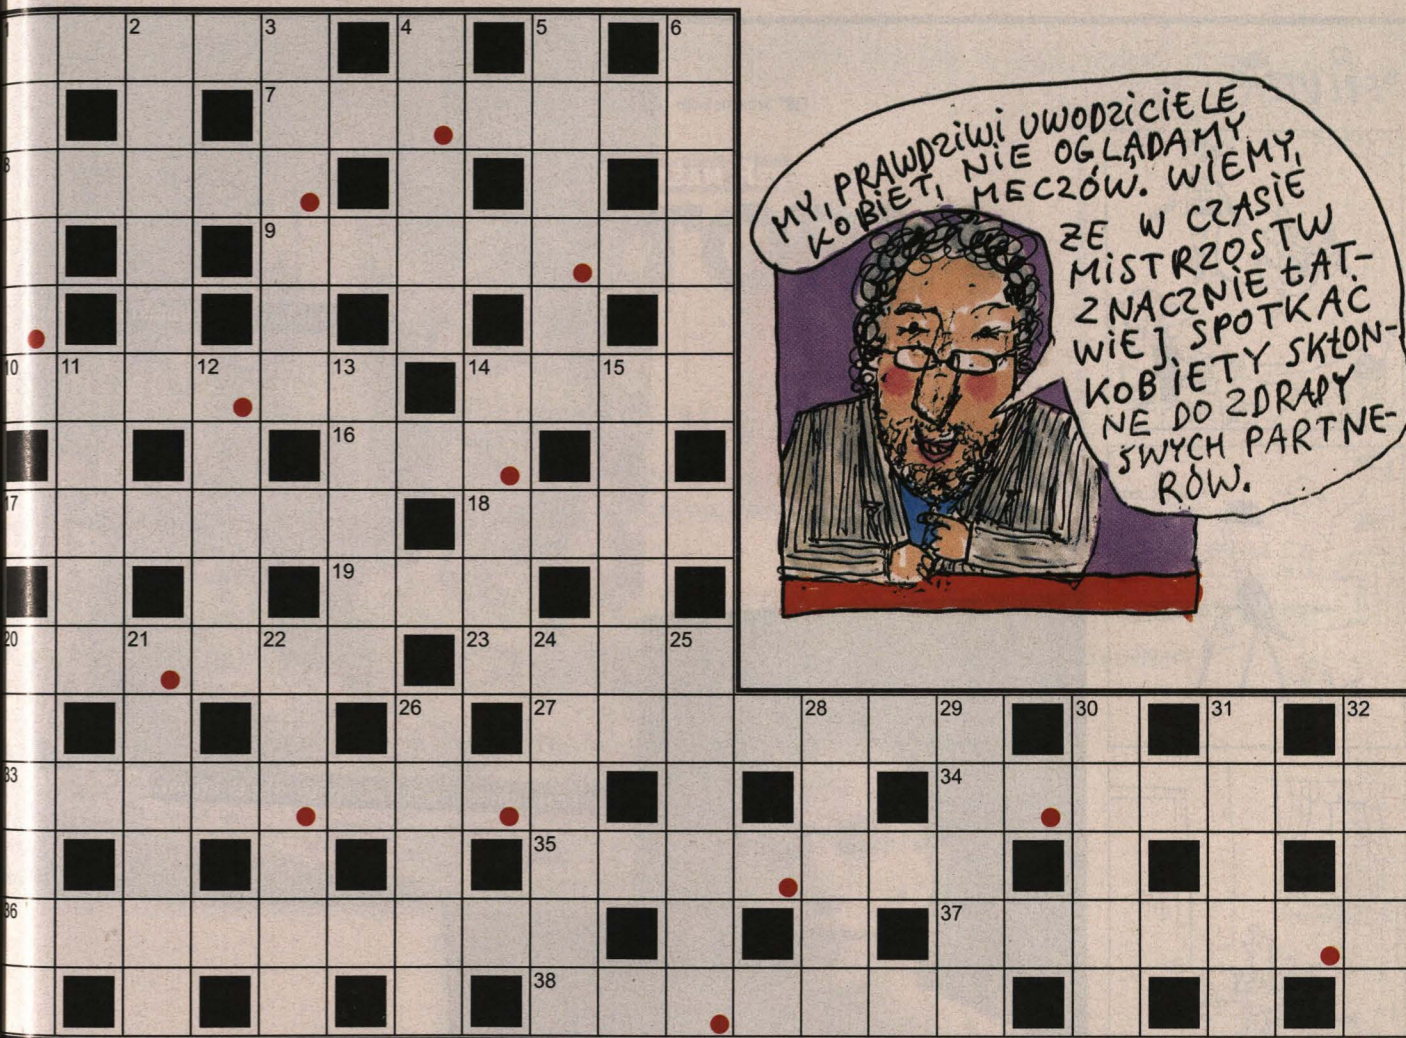 1 2 3 4 5 6
7
8
9
10 11 12 13 14 15
16
17 18
19
20 21 22 23 24 25
26 27 28 29 30 31 32
33 34
35
36 37
38
MY, PRAWDZIWI UWODZICIELE
KOBIET, NIE OGLĄDAMY
MECZÓW. WIEMY,
ŻE W CZASIE
MISTRZOSTW
ZNACZNIE ŁAT-
WIEJ SPOTKAĆ
KOBIETY SKŁON-
NE DO ZDRADY
SWYCH PARTNE-
RÓW.